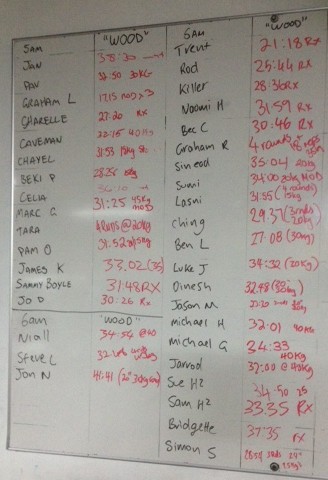 5am "WOOD"
JAN 38:30
PAV 32:50 30KG
GRAHAM L 17:15
CHARELLE 27:20 RX
CAVEMAN 22:15 40KG
CHAYEL 31:53 15kg
BEKI P 28:28
CELIA
MARC G 31:25 45kg MOD
TARA 4 RNDS @ 20kg
PAM O 31:52 @ 15kg
JAMES K 33.02 (35)
SAMMY BOYLE 31.48 RX
JO D 30:26 RX
6am "WOOD"
Niall 34:54 @40
Steve L
Jon N 41:41
6am "WOOD"
Trent 21:18 RX
Rod 25:44 RX
Killer 28:36 RX
Naomi H 31:59 RX
Bec C 30:46 RX
Graham R 4 rounds
Sinead 35:04 20kg
Sumi 34:00 20kg MOD
Losni 31:55 (4 rounds) 15kg
Ching 29:37 (3rnds) 20kg
Ben L 27:08 (30kg)
Luke J 34:32 (20kg)
Dinesh 32:48
Jason M
michael H 32:01 40kg
michael G 34:33 40KG
Jarrod 37:00 @ 40kg
Sue H2 34:50 25
Sam H2 33.35 RX
Bridgette 37:35 RX
Simon S